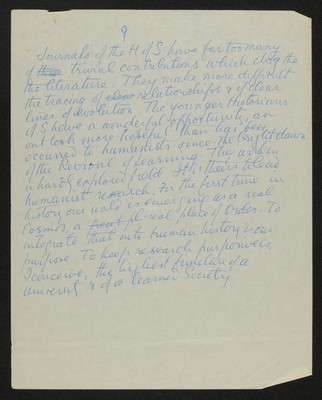 9
Journals of the H of S have far too many
of trivial contributions which clog the
the literature. They make more difficult
the tracing of relationships & of clear
lines of evolution. The younger Historians
of S have a wonderful opportunity, an
out look more hopeful than has been
occurred to humanists since the bright dawn
of the Revival of learning. They are in
a hardly explored field. It is theirs to lead
humanist research. For the first time in
history our world is emerging as a real
Cosmos, a real place of Order. To
integrate that into human history is our
purpose. To keep research purposive is,
I conceive, the highest function of a
University & of a learned Society